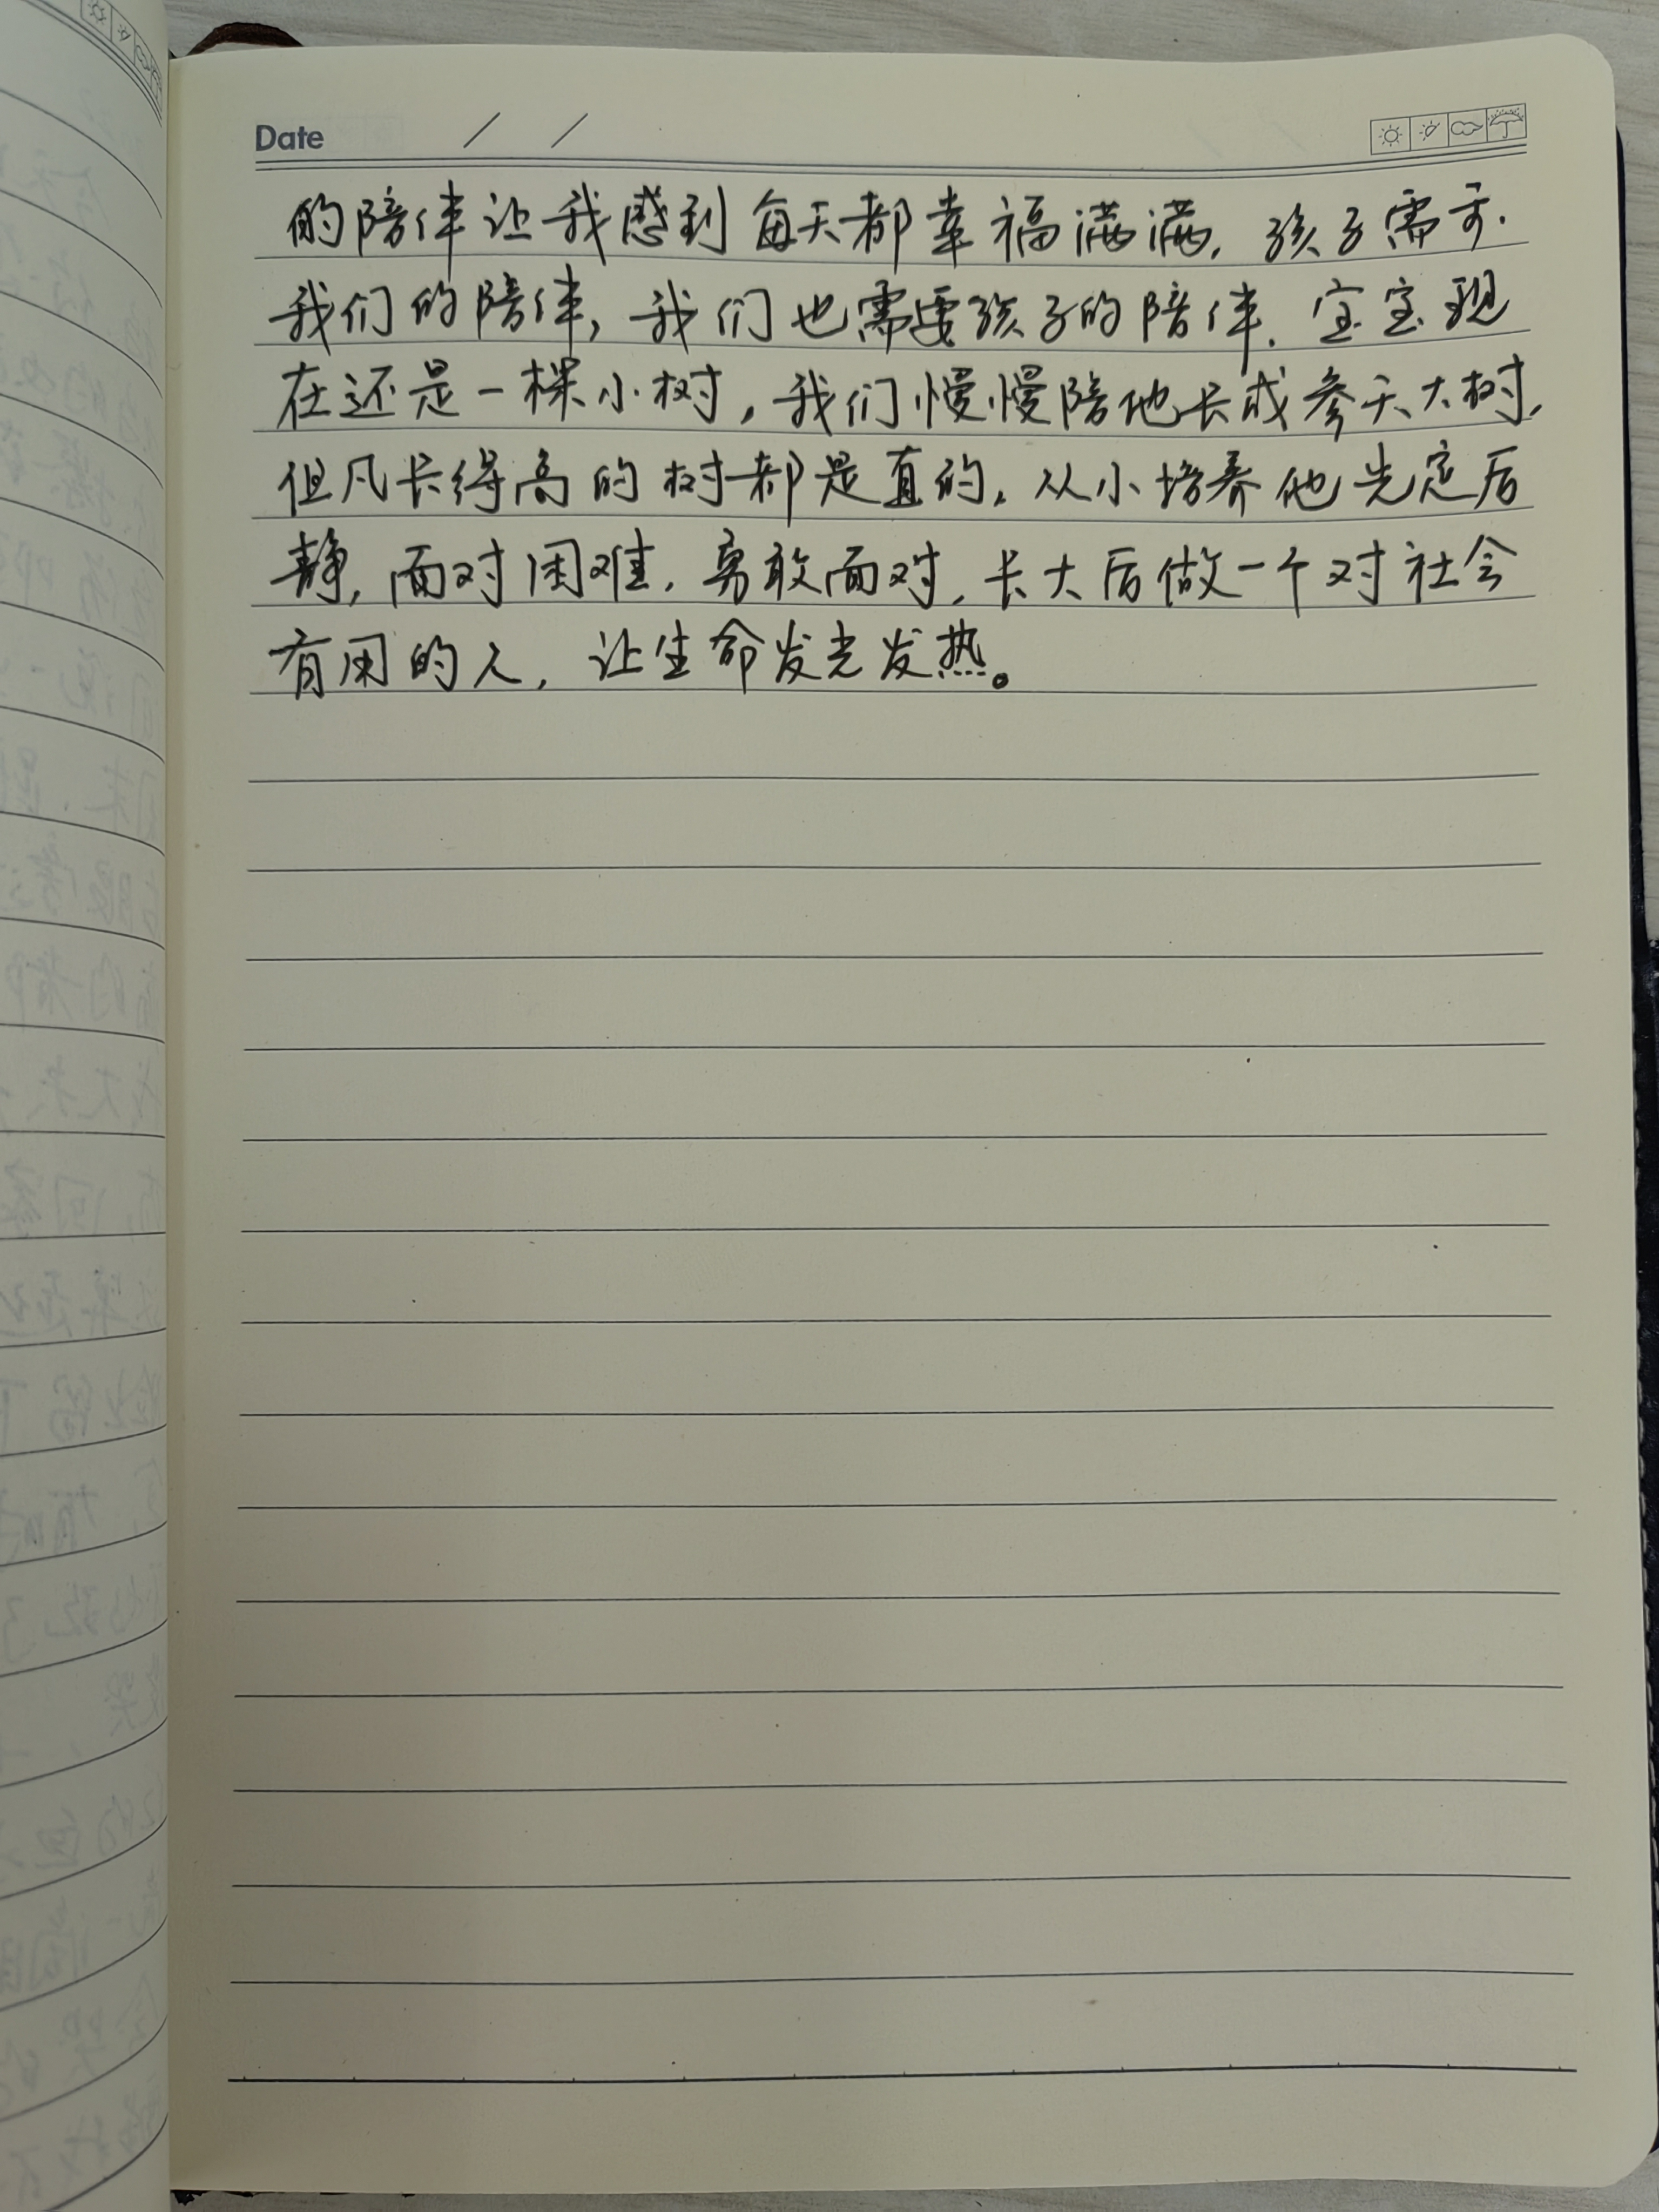 Date / /
的陪伴让我感到每天都幸福满满，孩子需
我们的陪伴，我们也需要孩子的陪伴．宝宝现
在还是一棵小树，我们慢慢陪他长成参天大树，
但凡长得高的树都是直的。从小培养他先定后
静，面对困难，勇敢面对，长大后做一个对社会
有用的人，让生命发光发热。